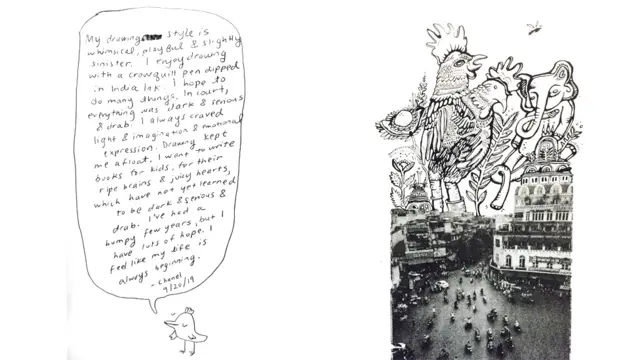 My drawing style is
whimsical, playful & slightly
sinister. I enjoy drawing
with a crowquill pen dipped
in India Ink. I hope to
do many things. In court,
everything was dark & serious
& drab. I always craved
light & imagination & emotional
expression. Drawing kept
me afloat. I want to write
books for kids, for their
ripe brains & juicy hearts,
which have not yet learned
to be dark & serious &
drab. I've had a
bumpy few years, but I
have lots of hope. I
feel like my life is
always beginning.
- Chanel
9/20/19